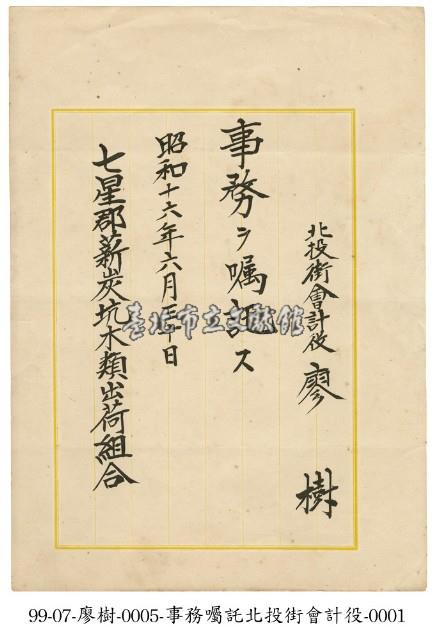 北投街會計役 廖 樹
事務ヲ囑託ス
昭和十六年六月十日
七星郡薪炭坑木類出荷組合
臺北市立文獻館
99-07-廖樹-0005-事務囑託北投街會計役-0001